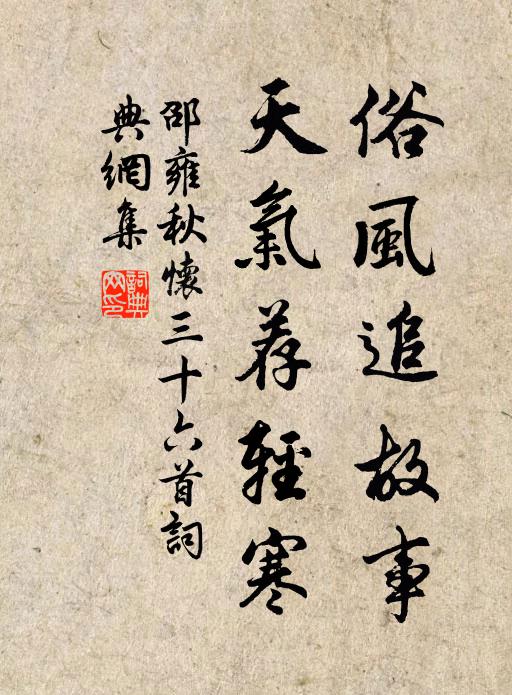 俗風追故事
天氣荐輕寒
邵雍秋懷三十六首詞
典網集
詞典網印